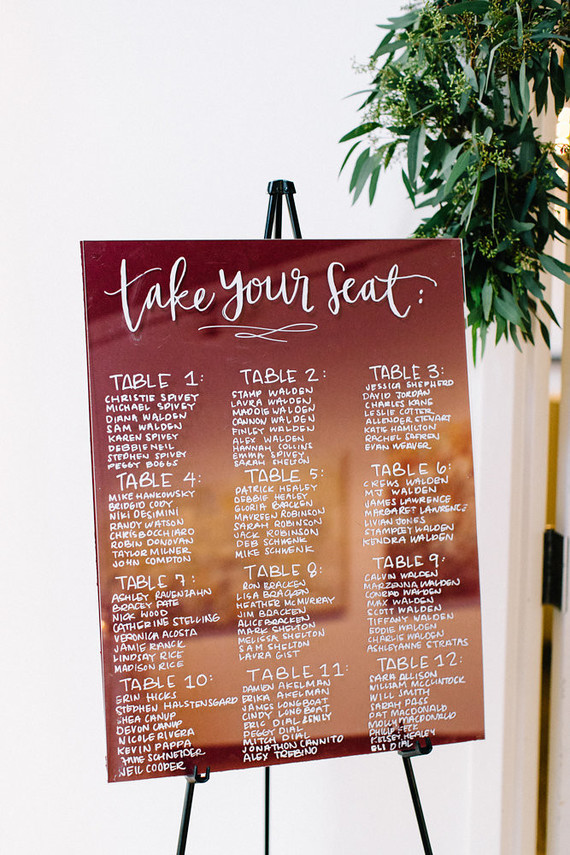 take your seat:
TABLE 1:
CHRISTIE SPIVEY
MICHAEL SPIVEY
DIANA WALDEN
SAM WALDEN
KAREN SPIVEY
DEBBIE NEIL
STEPHEN SPIVEY
PEGGY BOGGS
TABLE 2:
STAMP WALDEN
LAURA WALDEN
MADDIE WALDEN
CANNON WALDEN
FINLEY WALDEN
ALEX WALDEN
HANNAH COLLINS
EMMA SPIVEY
SARAH SHELTON
TABLE 3:
JESSICA SHEPHERD
DAVID JORDAN
CHARLES KANE
LESLIE COTTER
ALLENDER STEWART
KATE HAMILTON
RACHEL SAFREN
EVAN WEAVER
TABLE 4:
MIKE HANKOWSKY
BRIDGID CODY
NIKI DESIMINI
RANDY WATSON
CHRIS BOCCHIARO
ROBIN DONOVAN
TAYLOR MILNER
JOHN COMPTON
TABLE 5:
PATRICK HEALEY
DEBBIE HEALEY
GLORIA BRACKEN
MAUREEN ROBINSON
SARAH ROBINSON
JACK ROBINSON
DEB SCHWENK
MIKE SCHWENK
TABLE 6:
CREWS WALDEN
MJ WALDEN
JAMES LAWRENCE
MARGARET LAWRENCE
LIVIAN JONES
STAMPLEY WALDEN
KENDRA WALDEN
TABLE 7:
ASHLEY RAVENZAHN
BRACEY PATE
NICK WOOD
CATHERINE STELLING
VERONICA ACOSTA
JAMIE RANCK
LINDSAY RICE
MADISON RICE
TABLE 8:
RON BRACKEN
LISA BRACKEN
HEATHER MCMURRAY
JIM BRACKEN
ALICE BRACKEN
MARK SHELTON
MELISSA SHELTON
SAM SHELTON
LAURA GIST
TABLE 9:
CALVIN WALDEN
MARZENNA WALDEN
CONRAD WALDEN
MAX WALDEN
SCOTT WALDEN
TIFFANY WALDEN
EDDIE WALDEN
CHARLIE WALDEN
ASHLEYANNE STRATAS
TABLE 10:
ERIN HICKS
STEPHEN HALSTENSGARD
SHEA CANUP
DEVON CANUP
NICOLE RIVERA
KEVIN PAPPA
SCHNEIDER
NEIL COOPER
TABLE 11:
DAMIEN AKELMAN
ERIKA AKELMAN
JAMES LONGBOAT
CINDY LONGBOAT
ERIC DIAL & EMILY
PEGGY DIAL
MITCH DIAL
JONATHON CANNITO
ALEX TREBINO
TABLE 12:
SARA ALLISON
WILLIAM MCCLINTOCK
WILL SMITH
SARAH PASS
PAT MACDONALD
MOLLY MACDONALD
KELSEY HEALEY
ELI DIAL